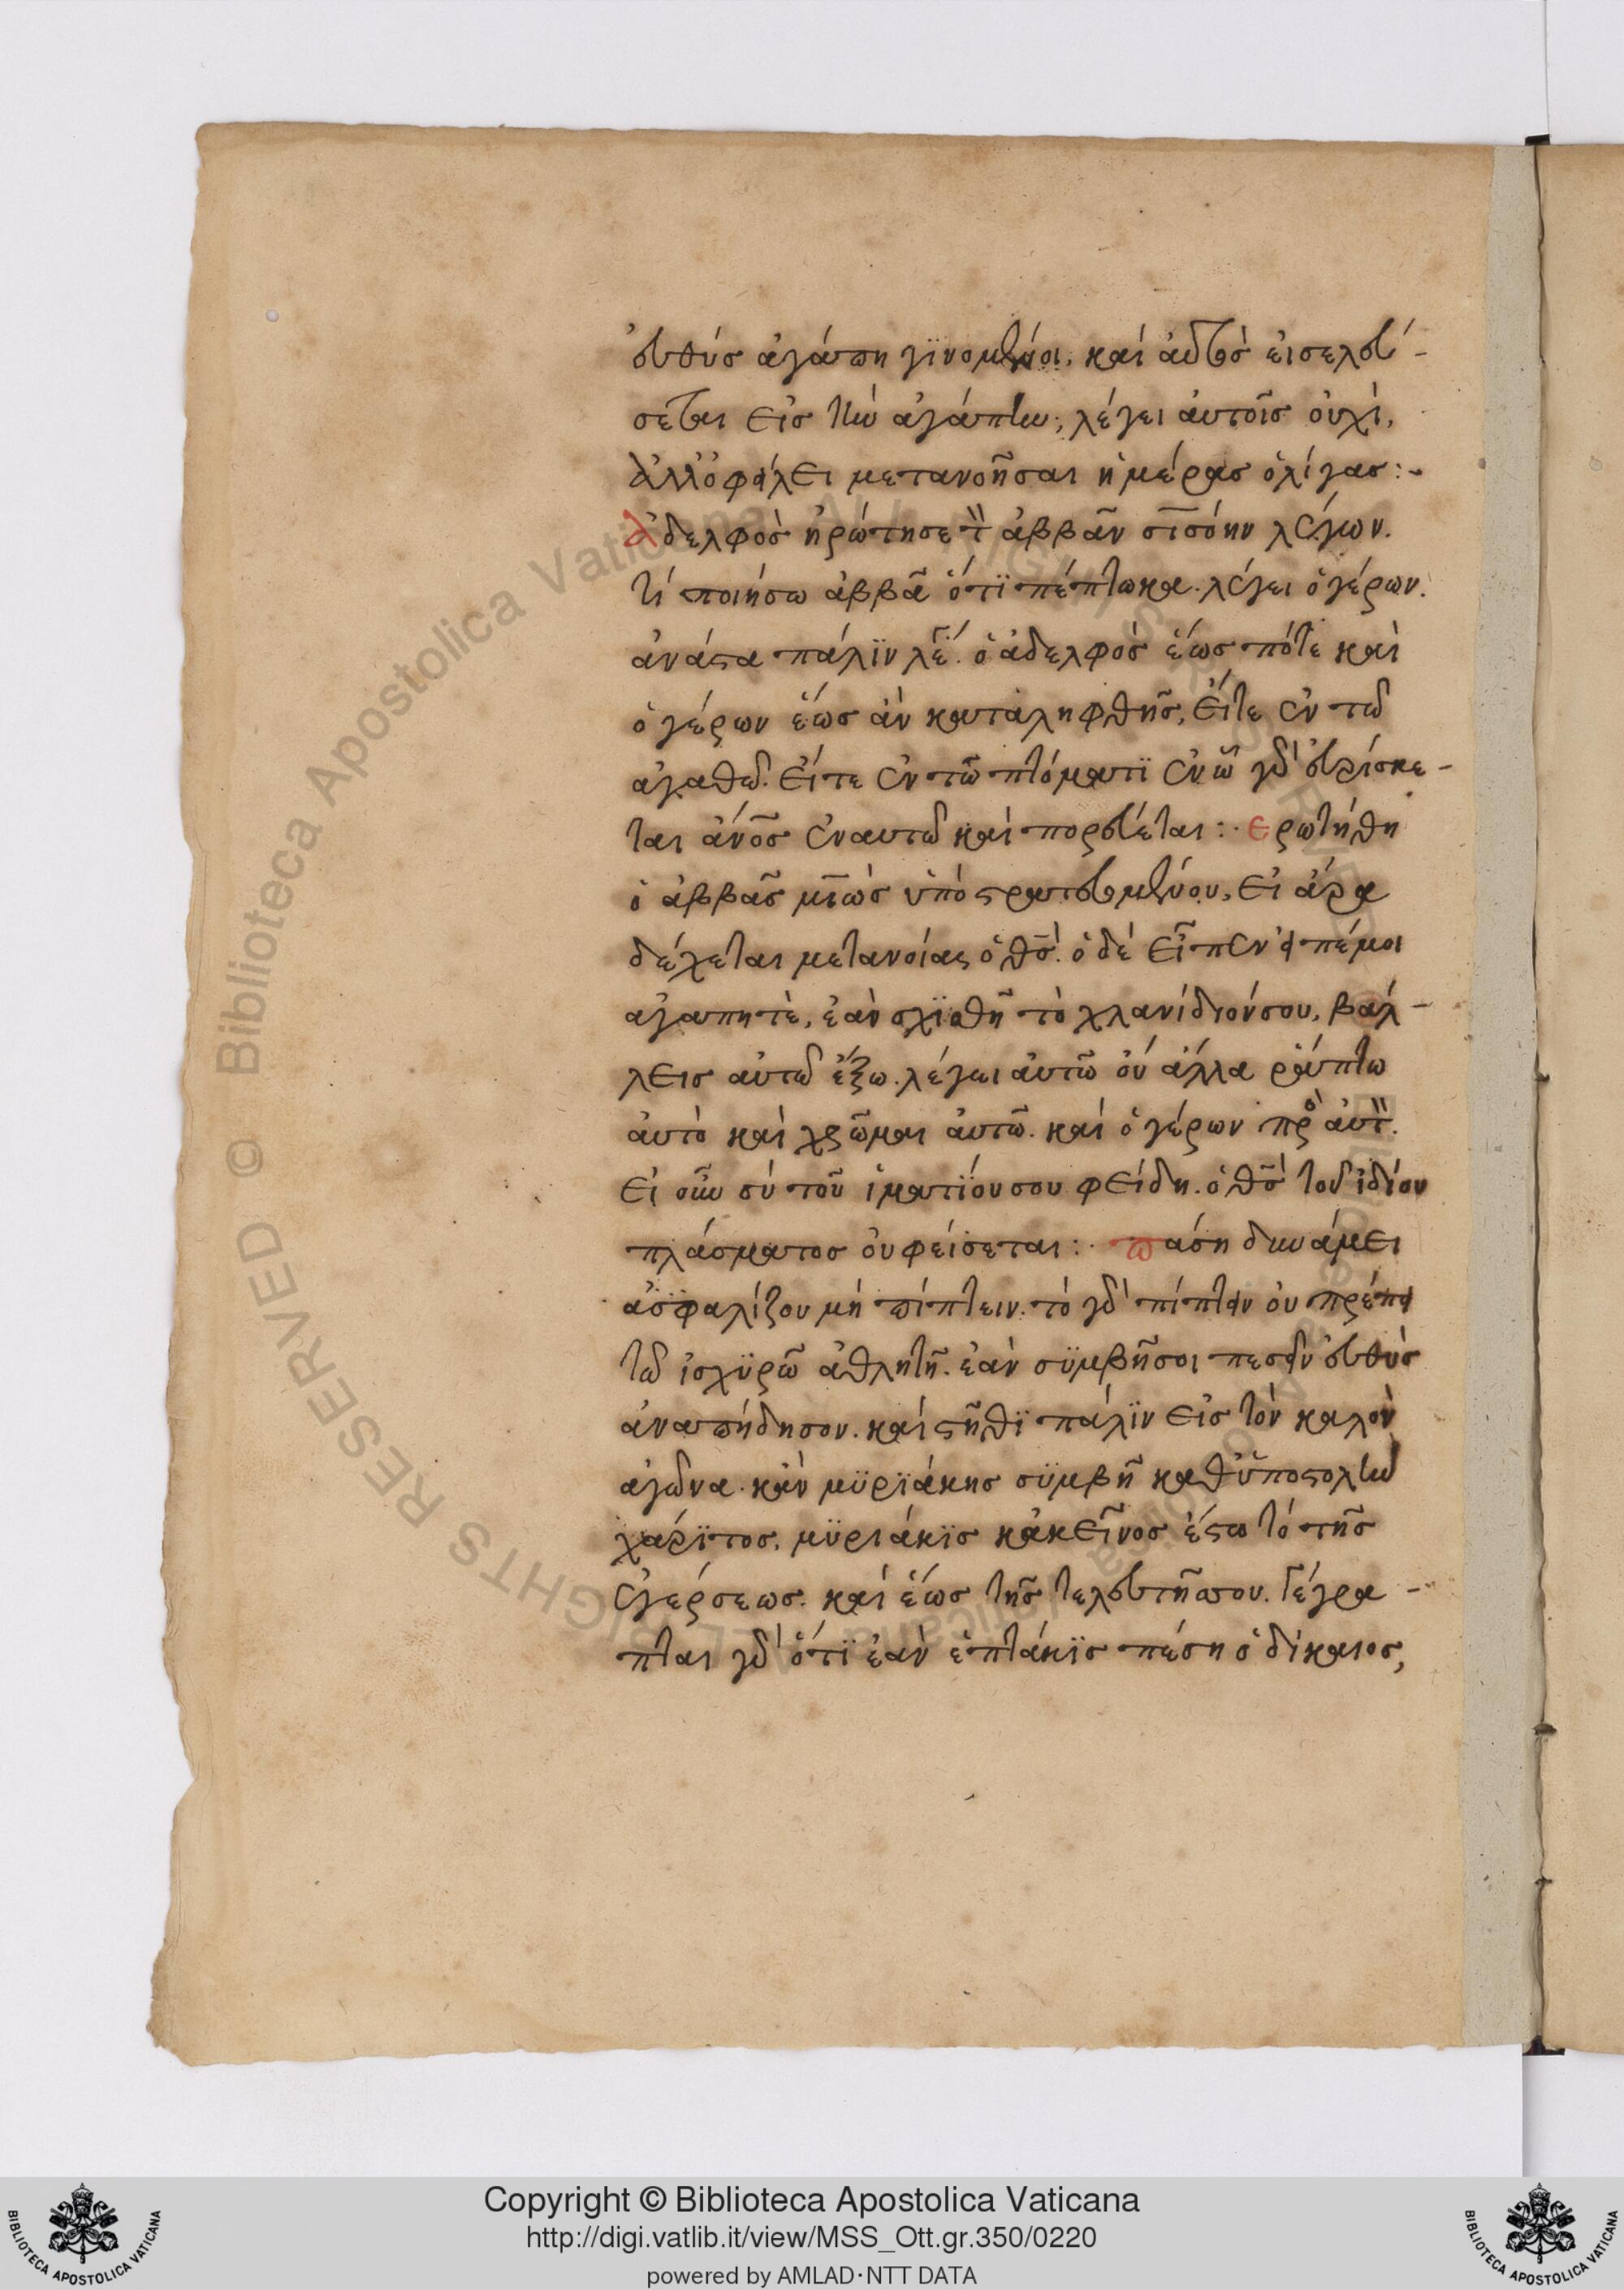 εὐθύς ἀγάπη γϊνομένη, καί αὐτὸσ εἰσελεύ-
σεται εἰσ τὴν ἀγάπην; λέγει ἀυτοῖσ ὀυχὶ,
ἀλλ' ὀφείλει μετανοῆσαι ἡμέρασ ὀλίγασ:-
Ἀδελφὸσ ἠρώτησε τὸν ἀββᾶν σισόην λέγων.
τί ποιήσω ἀββᾶ ὅτϊ πέπτωκα. λέγει ὁ γέρων.
ἀνάστα πάλϊν λέγει ὁ ἀδελφὸσ ἕωσ πότε καὶ
ὁ γέρων ἕωσ ἀν καταληφθῆσ, εἴτε ἐν τῶ
ἀγαθῶ. εἴτε ἐν τῶ πτόματϊ ἐν ὧ γὰρ εὑρίσκε-
ται ἄνοσ ἐν αυτῶ καὶ πορεύεται:· Ερωτήθη
ὁ ἀββᾶσ μιὼσ ὑπὸ στρατευμένου, εἰ ἄρα
δέχεται μετανοίας ὁ θσ. ὁ δὲ εἶπεν εἰπέ μοι
ἀγαπητὲ, ἐὰν σχϊσθῆ τὸ χλανίδιόν σου, βάλ-
λεισ αὐτῶ ἔξω. λέγει αὐτῶ ὀύ ἀλλα ῥάπτω
ἀυτὸ καὶ χρῶμαι ἀυτῶ. καὶ ὁ γέρων πρὸσ ἀυτὸν.
εἰ οὖν σὺ τοῦ ἱματϊόυ σου φείδη. ὁ θσ τοῦ ἰδίου
πλάσματοσ ὀυ φείσεται:· Πάση δυνάμει
ἀσφαλίζου μή πίπτειν. τὸ γὰρ πίπτειν ὀυ πρέπει
τῶ ἰσχϋρῶ ἀθλητῆ. ἐὰν σϋμβῆ σοι πεσεῖν εὐθὺσ
ἀναπήδησον. καί στῆθϊ πάλϊν εἰσ τὸν καλὸν
ἀγῶνα. κἀν μϋρϊάκησ σϋμβῆ καθ' ὑποστολὴν
χάρϊτοσ, μϋριάκϊσ κἀκεῖνοσ ἔστω τό τῆσ
ἐγέρσεωσ. καὶ ἕωσ τῆσ τελευτῆσ σου. Γέγρα-
πται γὰρ ὅτϊ ἐὰν ἑπτάκϊσ πέση ὁ δίκαιοσ,
Copyright © Biblioteca Apostolica Vaticana
http://digi.vatlib.it/view/MSS_Ott.gr.350/0220
powered by AMLAD·NTT DATA
BIBLIOTECA APOSTOLICA VATICANA
BIBLIOTECA APOSTOLICA VATICANA